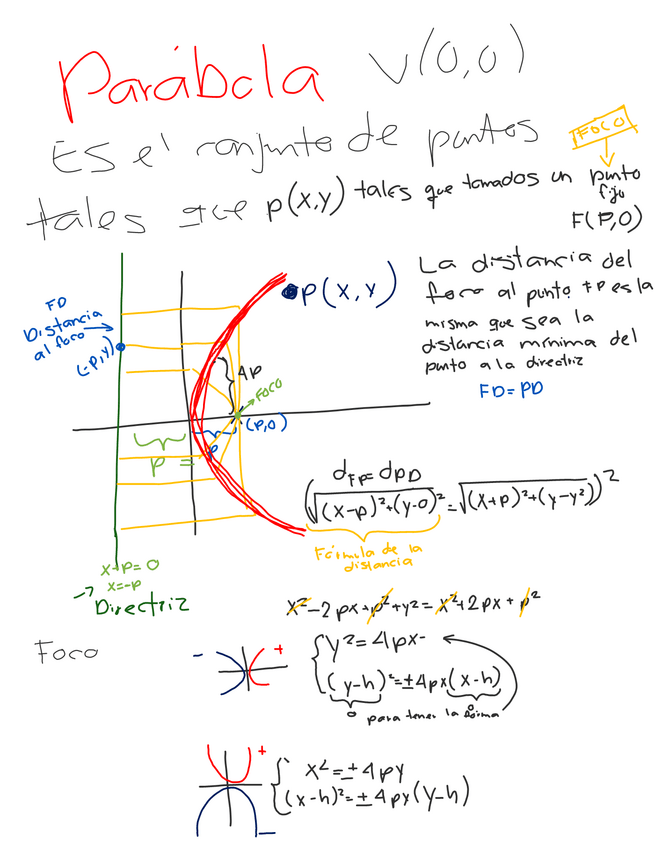 Parábola V(0,0)
Es el conjunto de puntos
FOCO
tales que p(x,y) tales que tomados un punto
fijo
F(P,0)
La distancia del
foco al punto +P es la
misma que sea la
distancia mínima del
punto a la directriz
FD=PD
P(X,Y)
FD
Distancia
al foco
(-P,Y)
4P
FOCO
(P,0)
P = P
dFP=dPD
(√(x-p)²+(y-0)² = √(x+p)²+(y-y²))²
Fórmula de la
distancia
x+p=0
x=-p
→ Directriz
x²-2px+p²+y²=x²+2px+p²
Foco
- +
y²=4px-
(y-h)²=±4px(x-h)
0 0
para tener la forma
+
x²=±4py
(x-h)²=±4px(y-h)
-